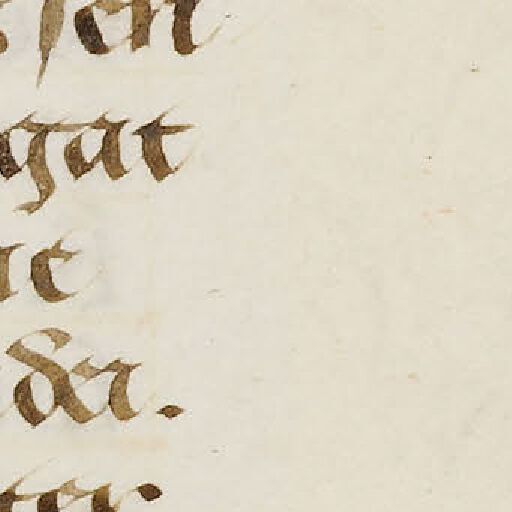 sen
gat
ne
der.
ter